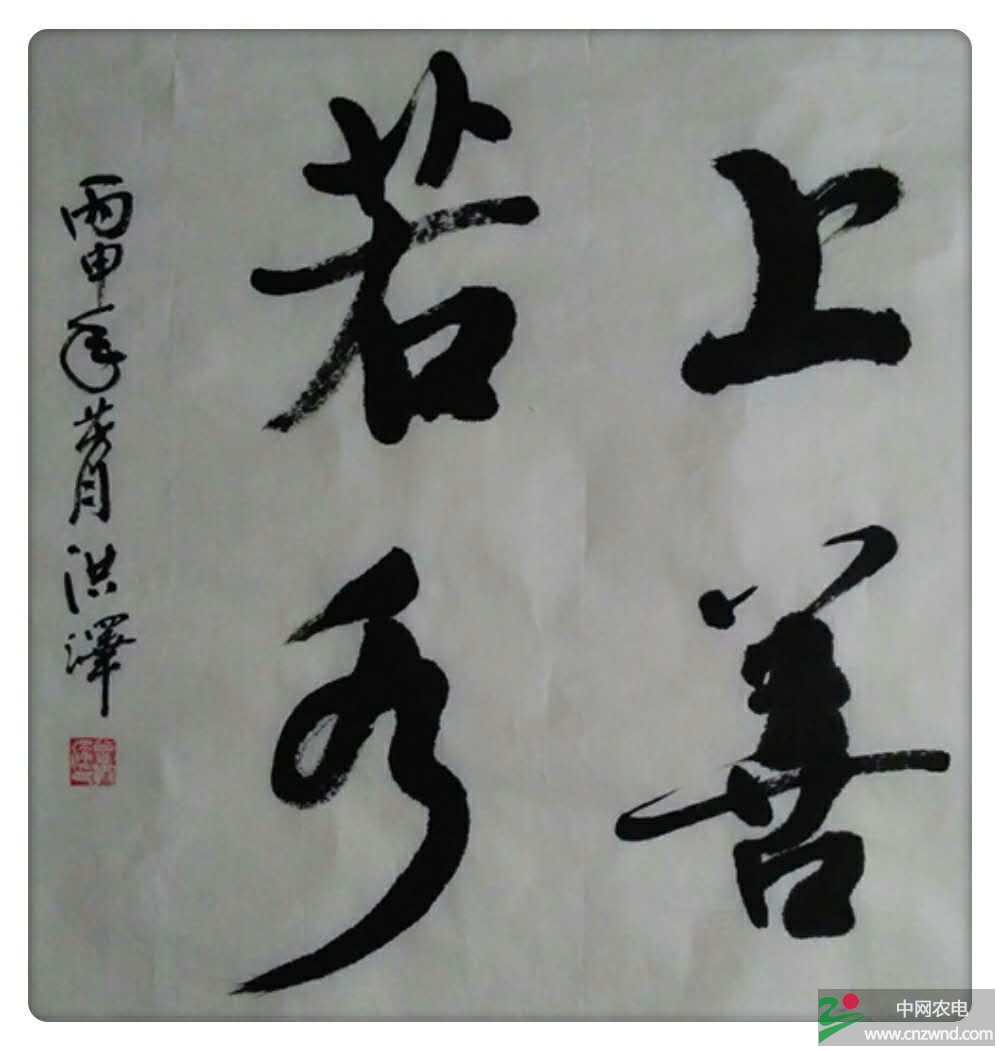 上善
若水
丙申年菁月洪泽
中网农电
www.cnzwnd.com